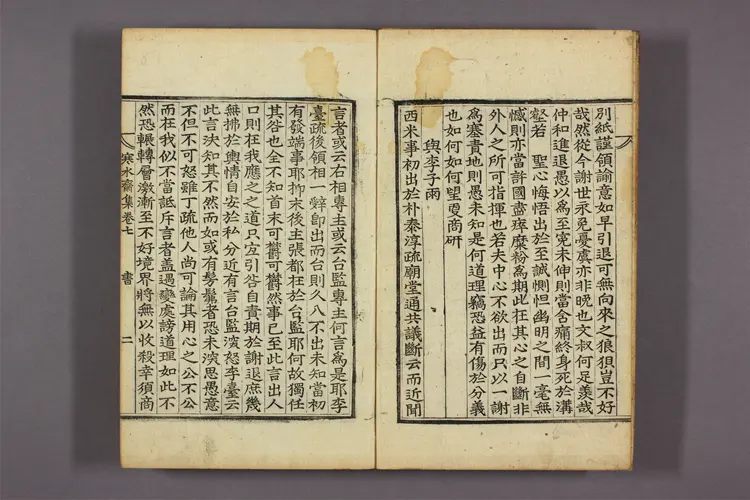 別紙謹領諭意如早引退可無向來之狼狽豈不好
哉然從今謝世永免憂虞亦非晚也文叔何足羡哉
仲和進退愚以爲至寃未伸則當舍痛終身死於溝
壑若 聖心悔悟出於至誠惻怛幽明之間一毫無
憾則亦當許國盡瘁糜粉爲期此在其心之自斷非
外人之所可指揮也若夫中心不欲出而只以一謝
爲塞責地則愚未知是何道理竊恐益有傷於分義
也如何如何望更商硏
與李子雨
西米事初出於朴泰淳疏廟堂通共議斷云而近聞
言者或云右相專主或云台監專主何言爲是耶李
臺疏後領相一辭卽出而台則久八不出未知當初
有發端事耶抑末後主張都在於台監耶何故獨任
其咎也全不知首末可鬱可鬱然事已至此言出人
口則在我應之之道只宜引咎自責期於謝退庶幾
無拂於輿情自安於私分近有言台監深怒李臺云
此言決知其不然而如或有髣髴者恐未深思愚意
不但不可怒雖丁疏他人尚可論其用心之公不公
而在我似不當詆斥言者盖遇變處謗道理如此不
然恐輾轉層激漸至不好境界將無以收殺幸須商
寒水齋集卷七 書 二